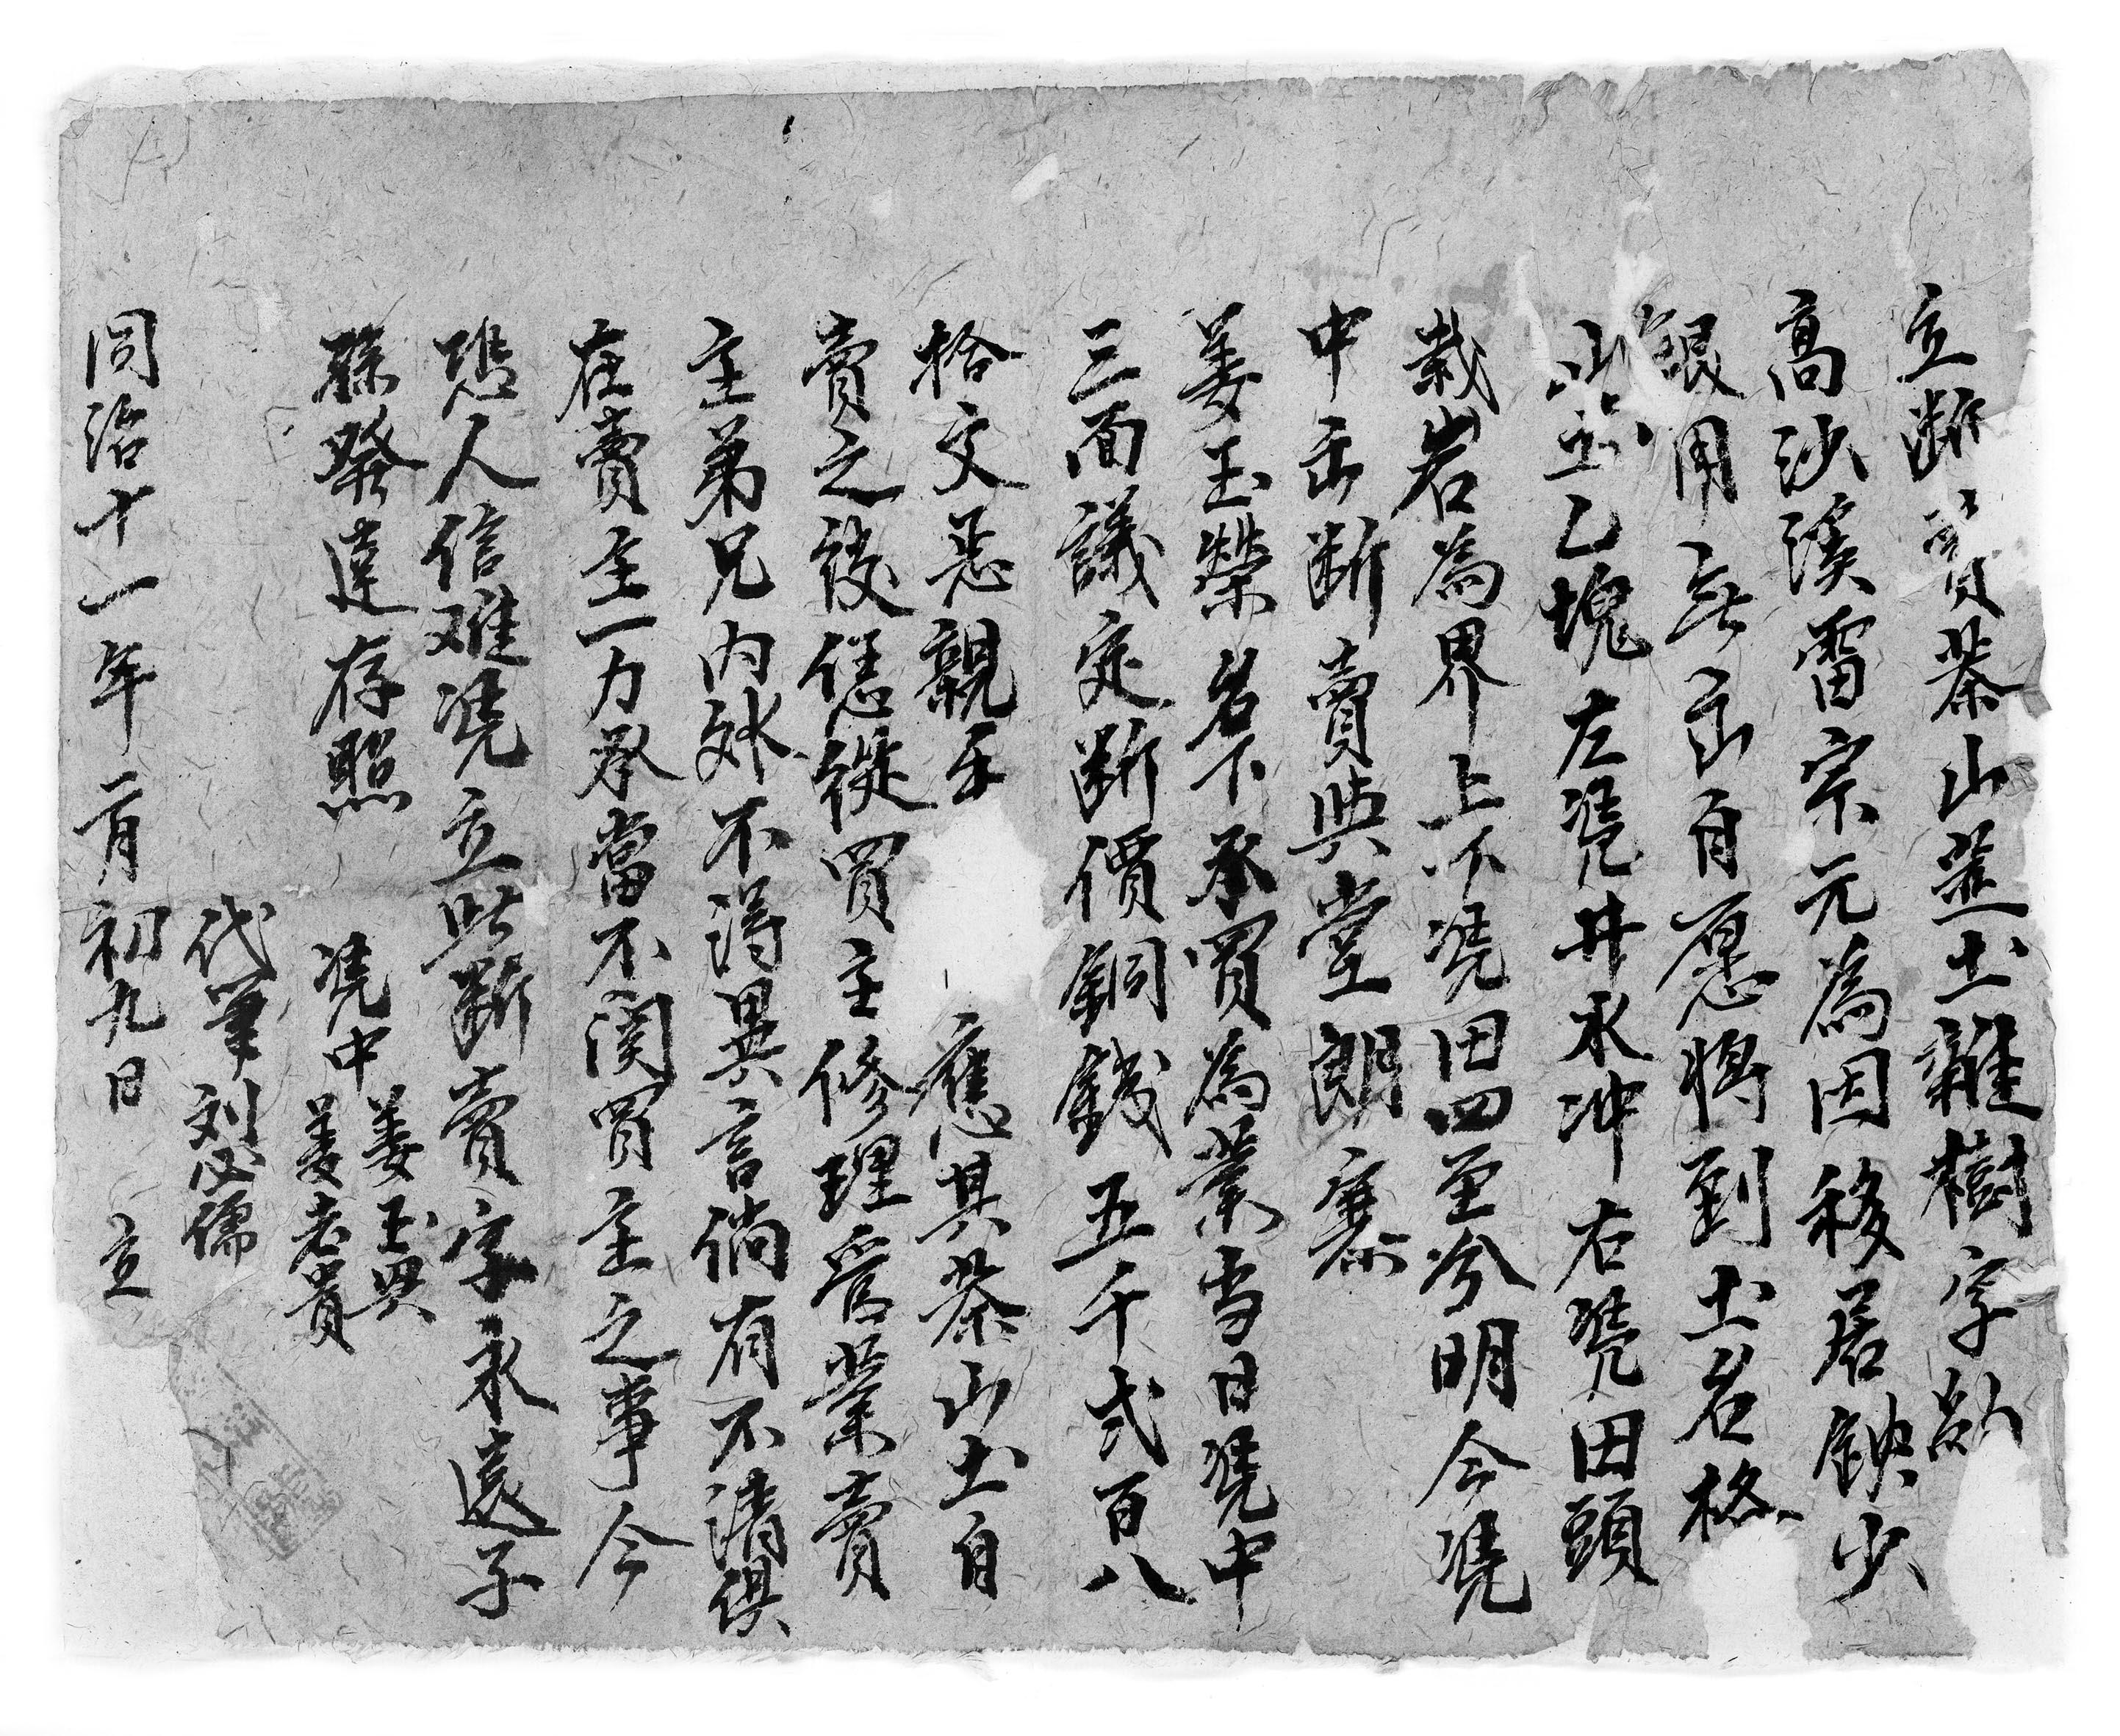 立断賣茶山並土雜樹字
高沙溪雷宗元為因移居缺少
銀用無出自愿將到土名格
山並乙塊左凴井水冲右凴田頭
栽岩為界上下凴田四至分明今凴
中出断賣與堂朗寨
姜玉榮名下承買為業当日凴中
三面議定断價銅錢五千弍百八
拾文悉親手應其茶山土自
賣之後恁從買主修理管業賣
主弟兄内外不得異言倘有不清俱
在賣主一力承當不関買主之事今
恐人信难凴立此断賣字永遠子
孫發達存照
凴中 姜玉興
姜老貴
代筆 刘必儒
同治十一年二月初九日 立